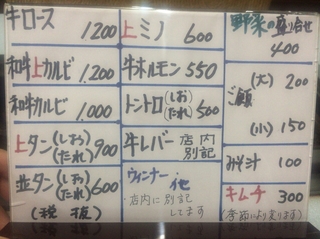 牛ロース 1200
和牛上カルビ 1,200
和牛カルビ 1,000
上タン(しお/たれ) 900
並タン(しお/たれ) 600
(税抜)
上ミノ 600
牛ホルモン 550
トントロ(しお/たれ) 500
牛レバー 店内別記
ウィンナー 他
店内に別記
してます
野菜の盛り合せ
400
(大) 200
ご飯
(小) 150
みそ汁 100
キムチ 300
(季節により変ります)